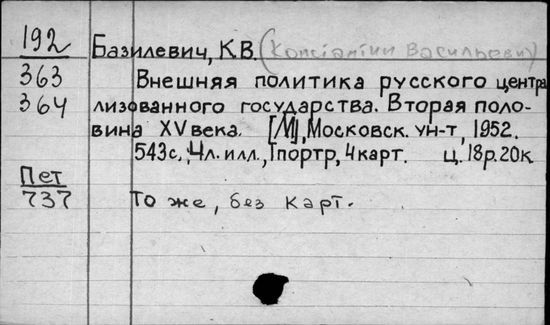 192
Базилевич, К.В. (Константин Васильевич)
363 Внешняя политика русского центра
364 лизованного государства. Вторая поло-
вина XV века. [М], Московск. ун-т, 1952.
543с., 4л. илл., 1портр, 4карт. ц. 18р. 20к
Пет
737 То же, без карт.